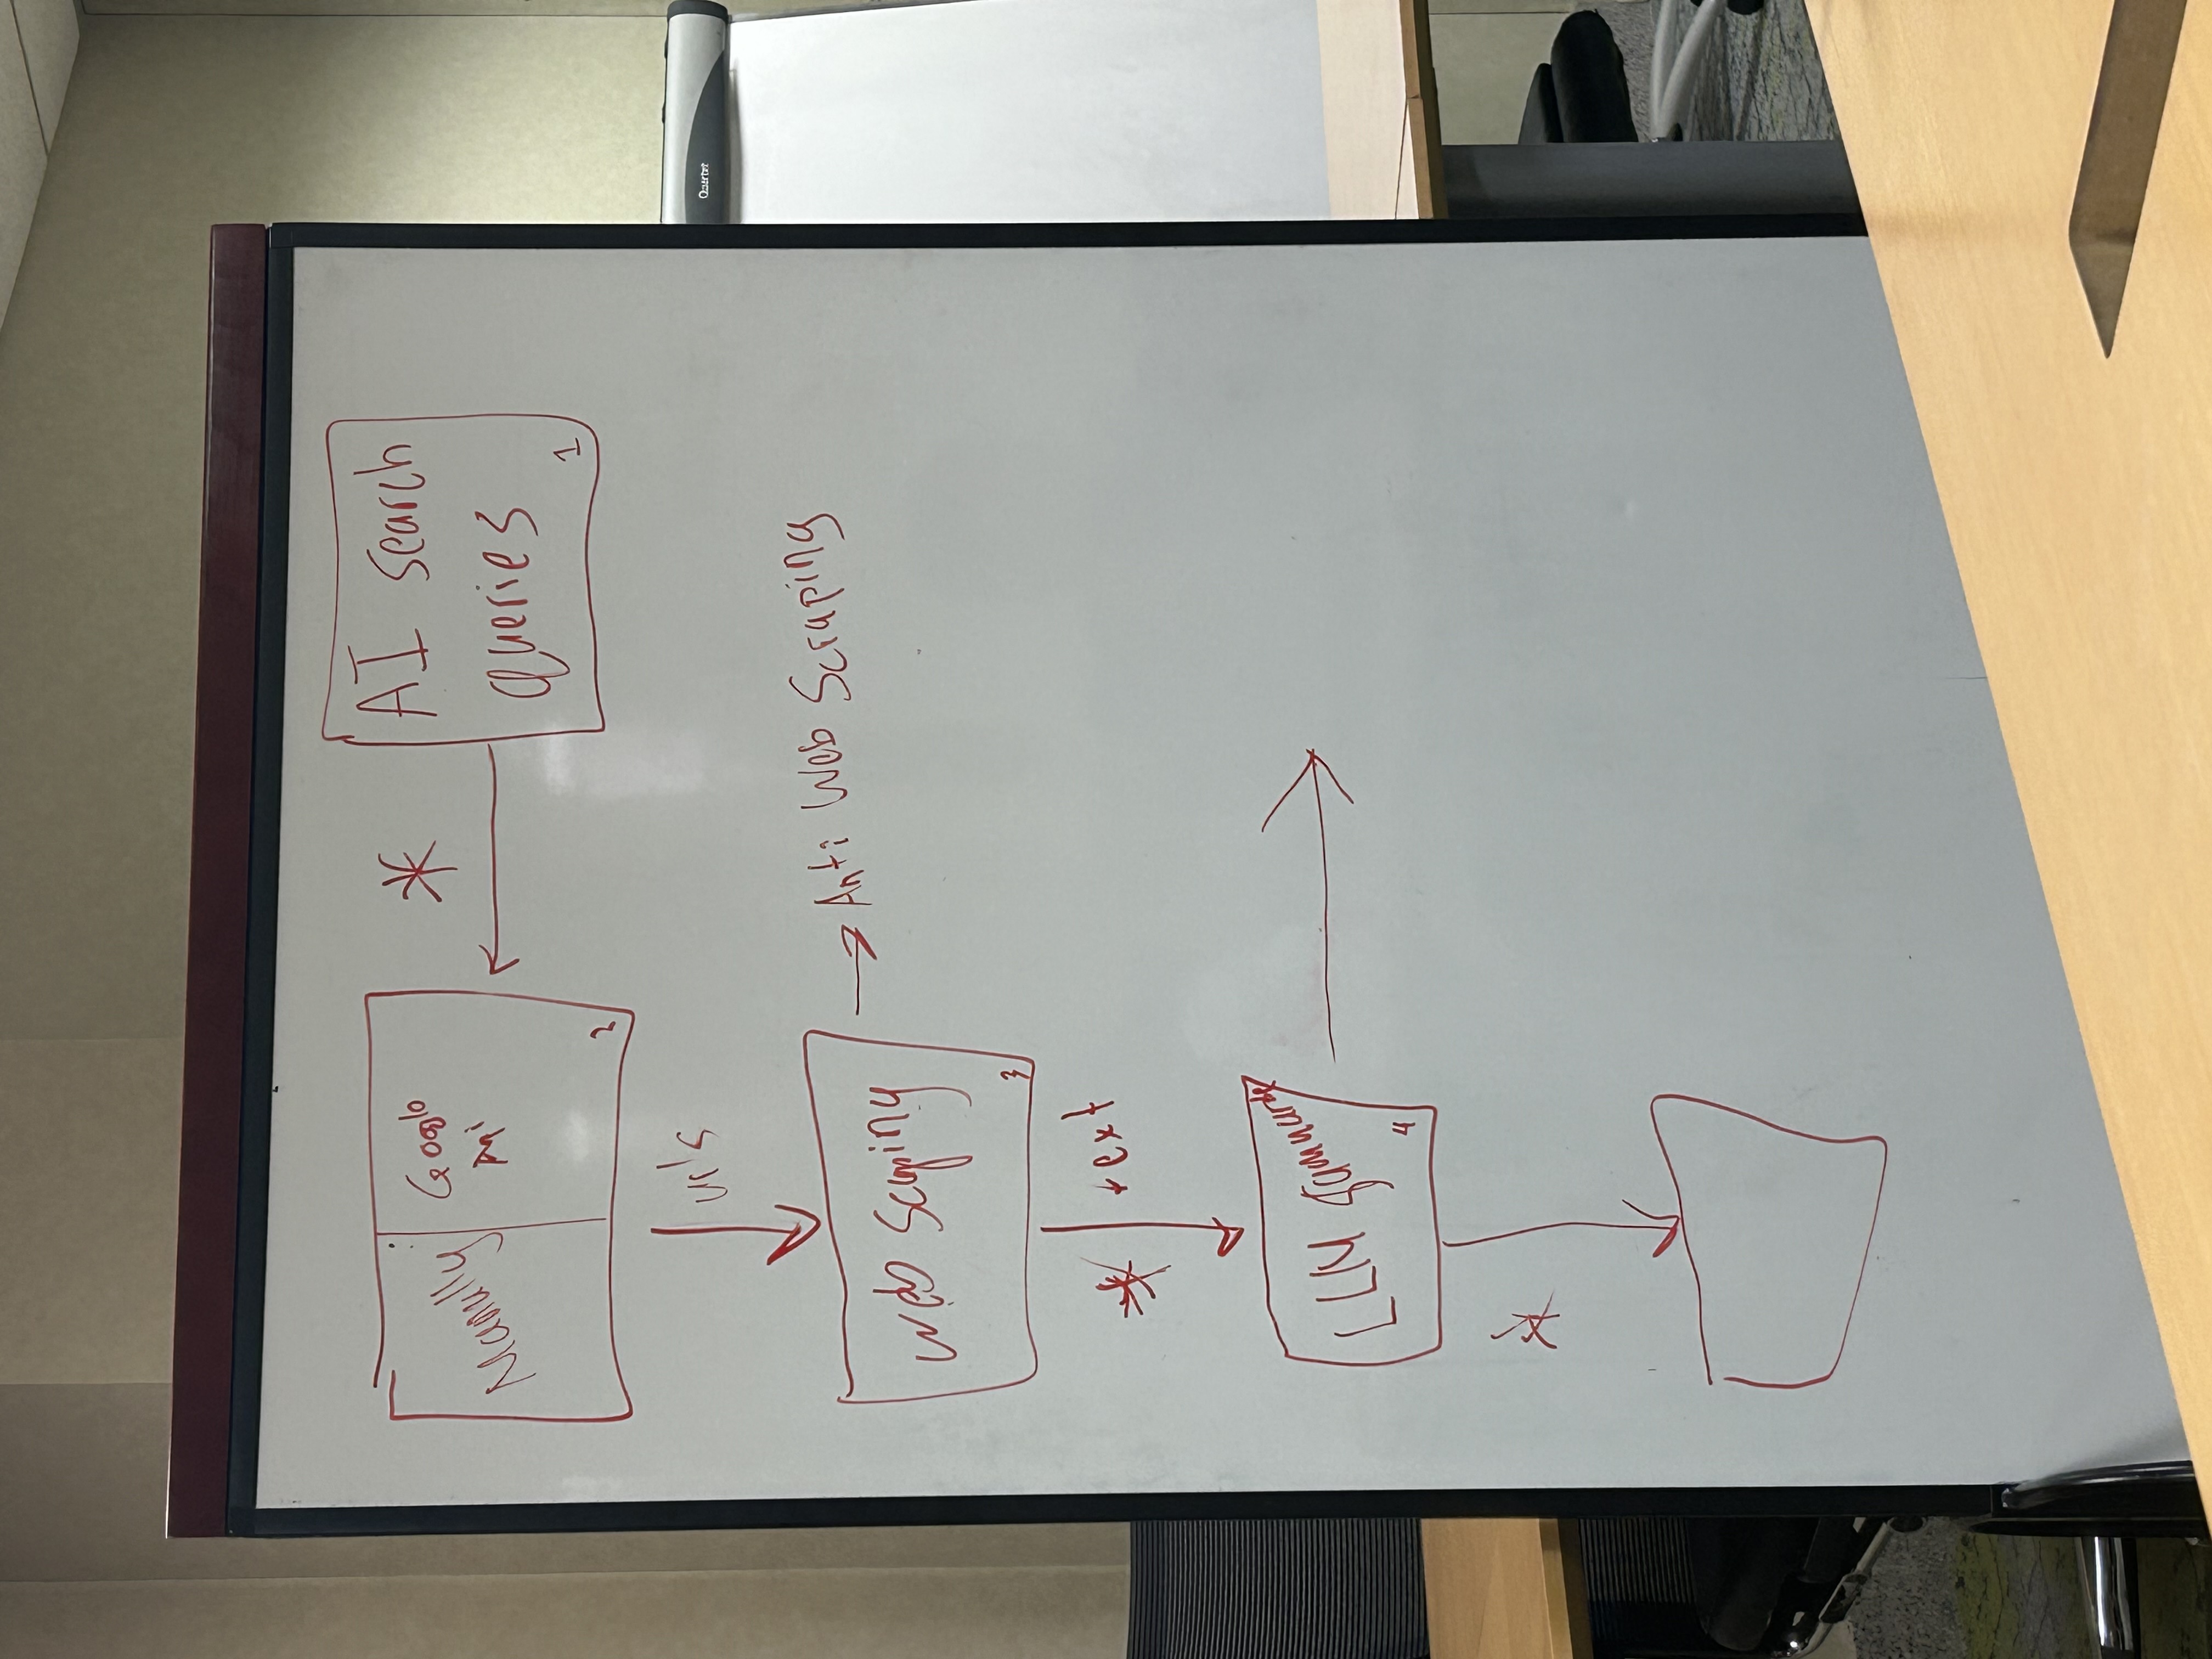 AI search
queries
1
*
Manully
Google
Api
2
url's
Web Scaping
3
Anti Web Scraping
*
text
LLM
4
*
Quartet